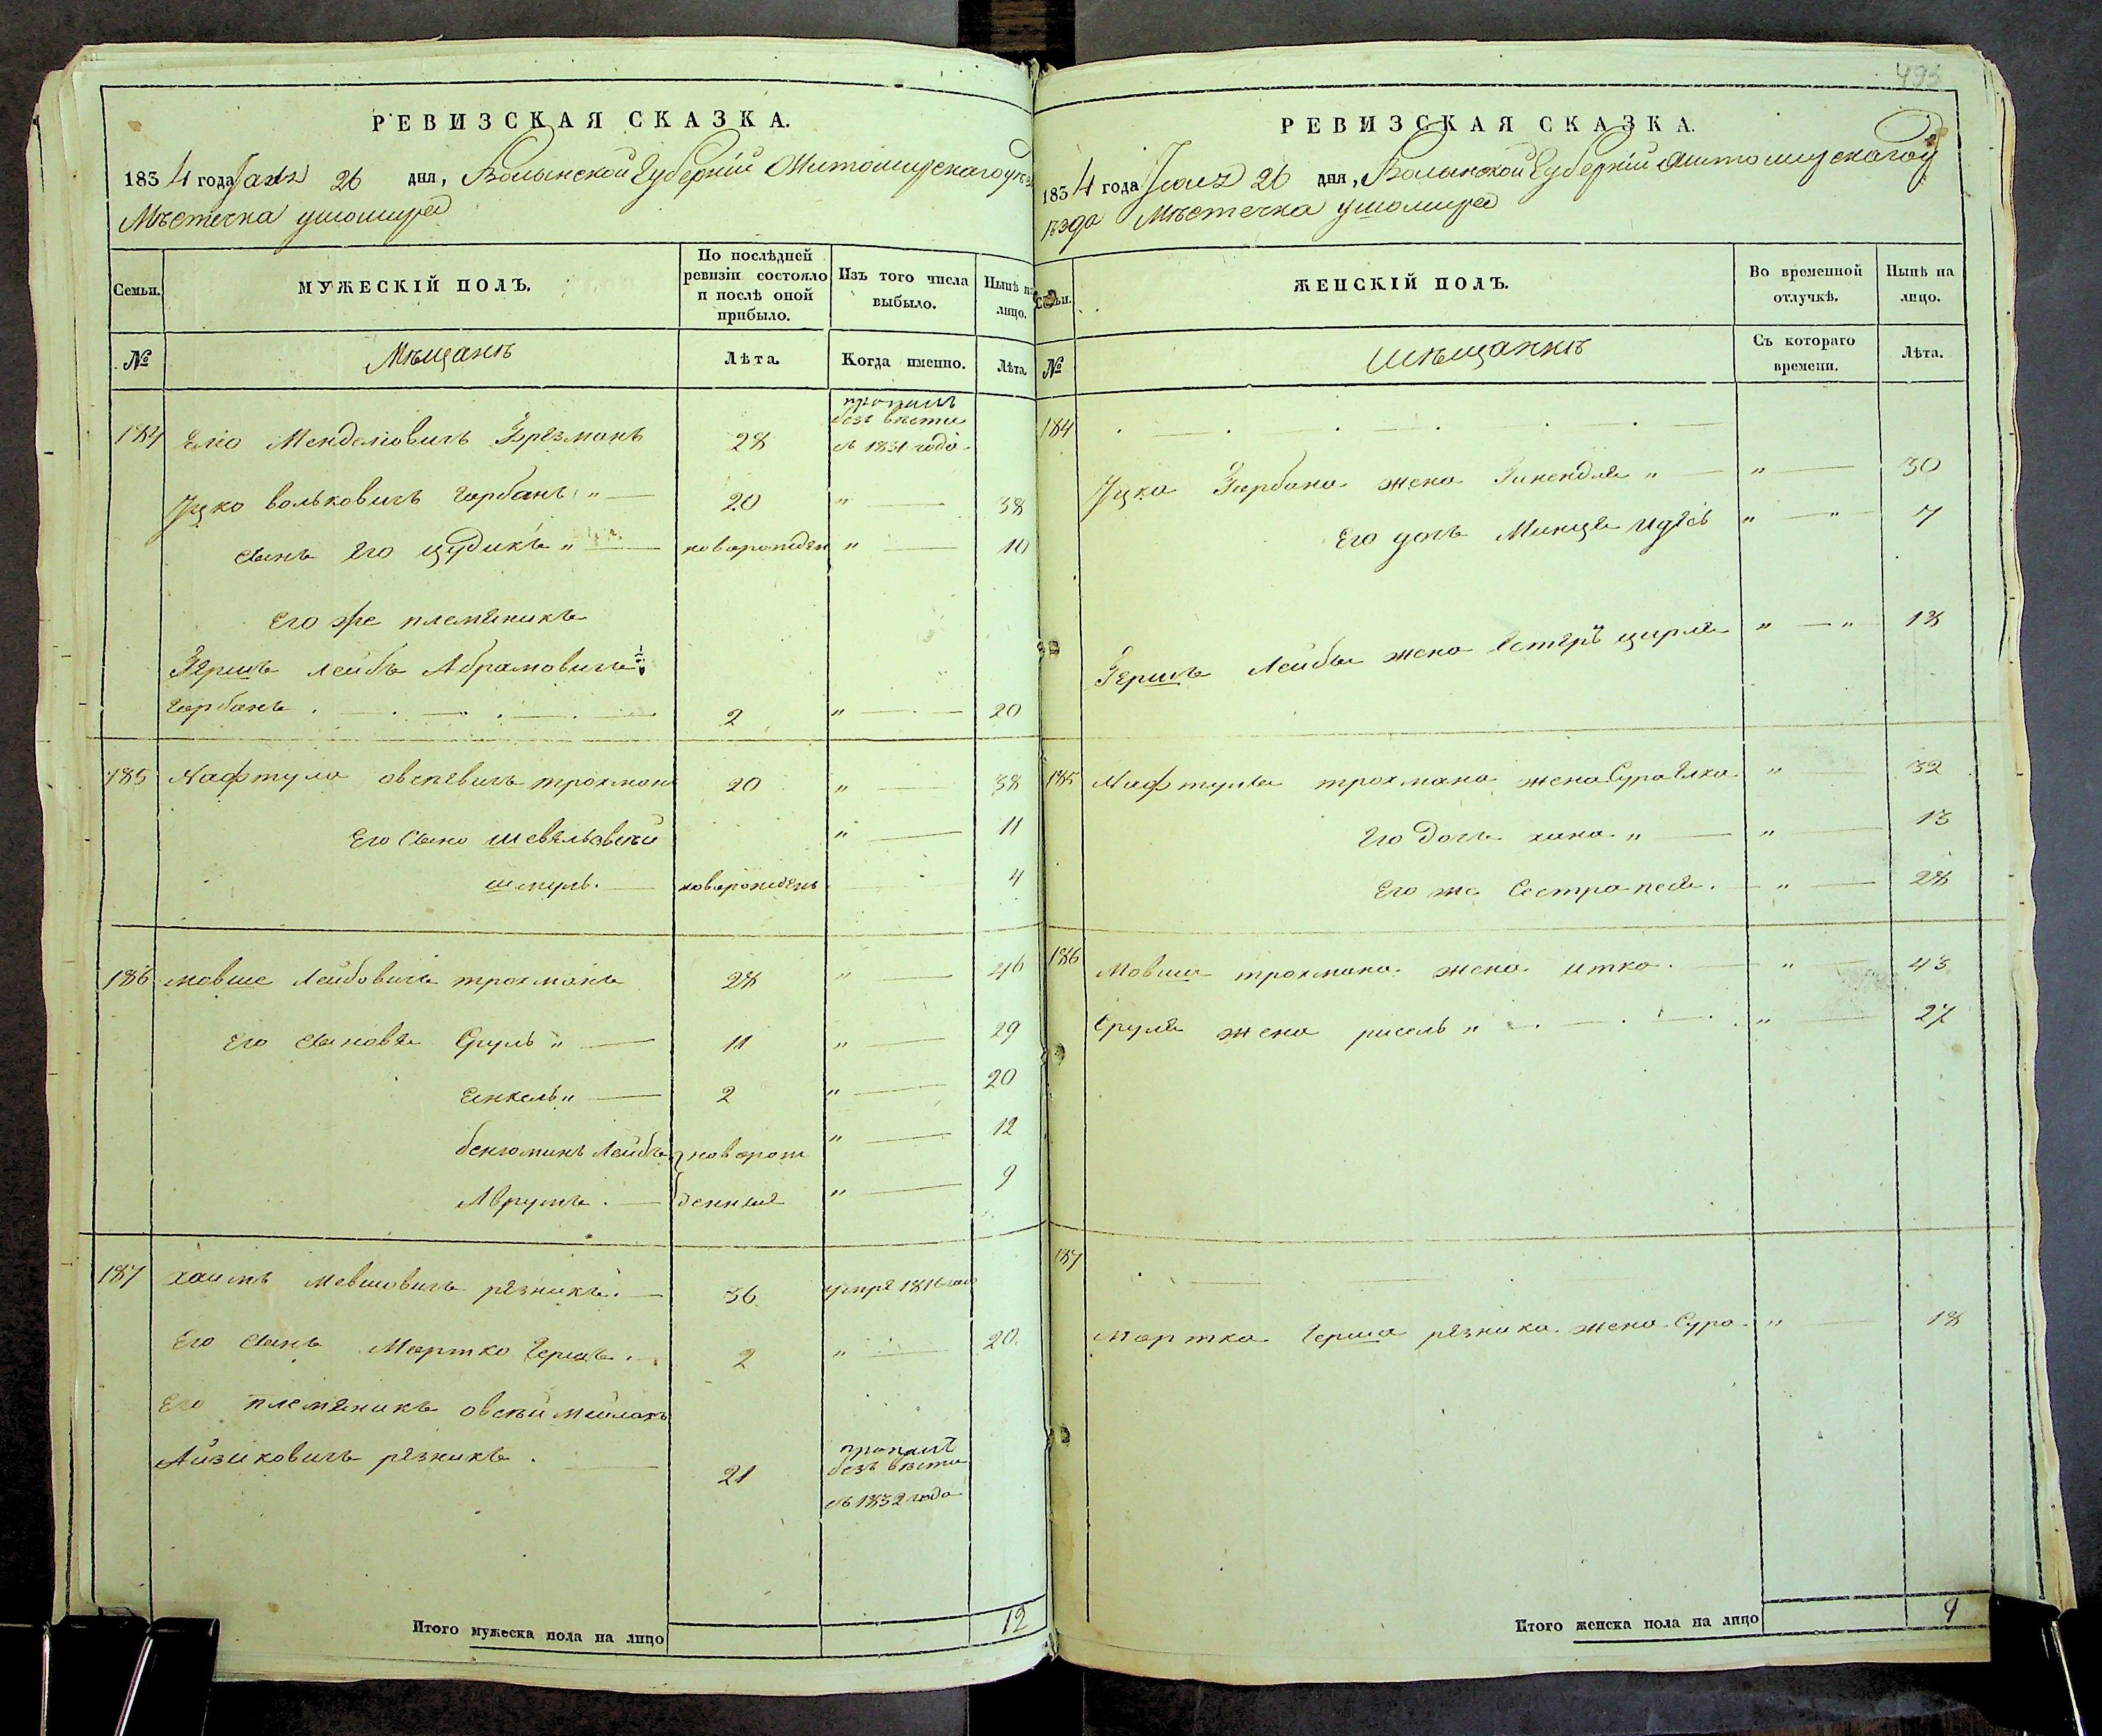 РЕВИЗСКАЯ СКАЗКА.
1834 года 26 дня, Волынской Губерніи Житомирскаго уѣз
Мѣстечка ушомира
Семьи. МУЖЕСКІЙ ПОЛЪ. По послѣдней ревизіи состояло и послѣ оной прибыло. Изъ того числа выбыло. Нынѣ на лицо.
№ Мѣщанѣ Лѣта. Когда именно. Лѣта
пропалъ
безъ вѣсти
184 Елю Менделіовичъ 28 съ 1831 года
Ицко вольковичъ Горбанъ " 20 " 38
сынъ его цудикъ " новорожден " 10
Его же племяникъ
Гершъ лейбъ Абрамовичъ
Горбанъ 2 " 20
185 Нафтула овсѣевичъ трохман 20 " 38
Его Сыно шевель овсѣй " 11
шмуль новорожденъ 4
186 мовше Лейбовичъ трохманъ 28 " 46
Его Сыновя Сруль " 11 " 29
Енкель " 2 " 20
бенюминъ Лейбъ новорож " 12
Аврумъ денныя " 9
187 хаимъ мовшовичъ рѣзникъ 36 умре 1816 года
Его Сынъ Мортко Гершъ 2 " 20
Его племяникъ овсѣй мейлахъ
Айзиковичъ рѣзникъ 21 пропалъ безъ вѣсти
съ 1832 года
Итого мужеска пола на лицо 12
493
РЕВИЗСКАЯ СКАЗКА.
1834 года 26 дня, Волынской Губерніи Житомирскаго у
ѣзда Мѣстечка ушомира
Семьи. ЖЕНСКІЙ ПОЛЪ. Во временной отлучкѣ. Нынѣ на лицо.
№ Мѣщанкѣ Съ котораго времени. Лѣта.
184
Ицка Горбана жена " " 30
Его дочь Минця " 7
Гершъ Лейбы жена Естеръ цирля " 18
185 Нафтулы трохмана жена Сура Елка " 32
Его дочь хана " " 13
Его же Сестра песя " 28
186 Мовша трохмана жена итка " 43
Сруля жена рисель " " 27
187
Мортка Герша рѣзника жена Сура " 18
Итого женска пола на лицо 9